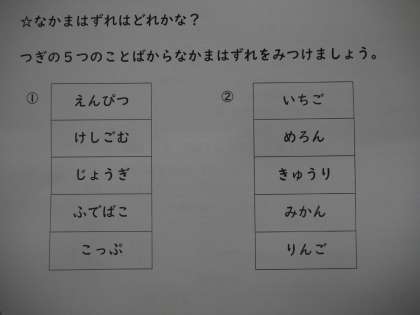 ☆なかまはずれはどれかな？
つぎの５つのことばからなかまはずれをみつけましょう。
①
えんぴつ
けしごむ
じょうぎ
ふでばこ
こっぷ
②
いちご
めろん
きゅうり
みかん
りんご